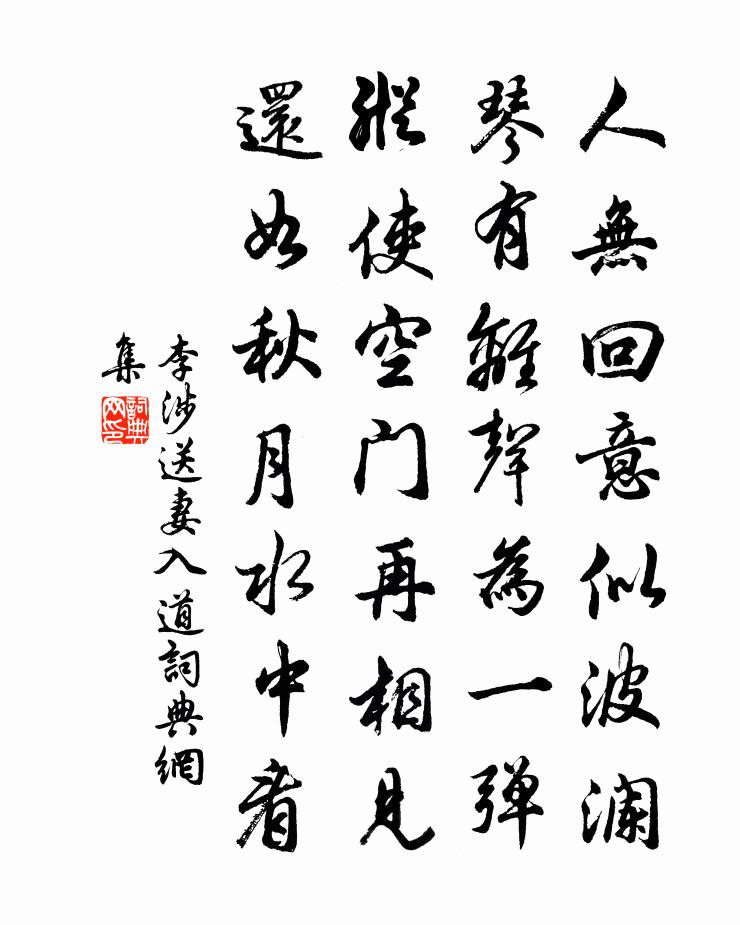 人無回意似波澜
琴有離聲為一弹
縱使空门再相見
還如秋月水中看
李涉送妻入道詞典網
集
詞典
网印